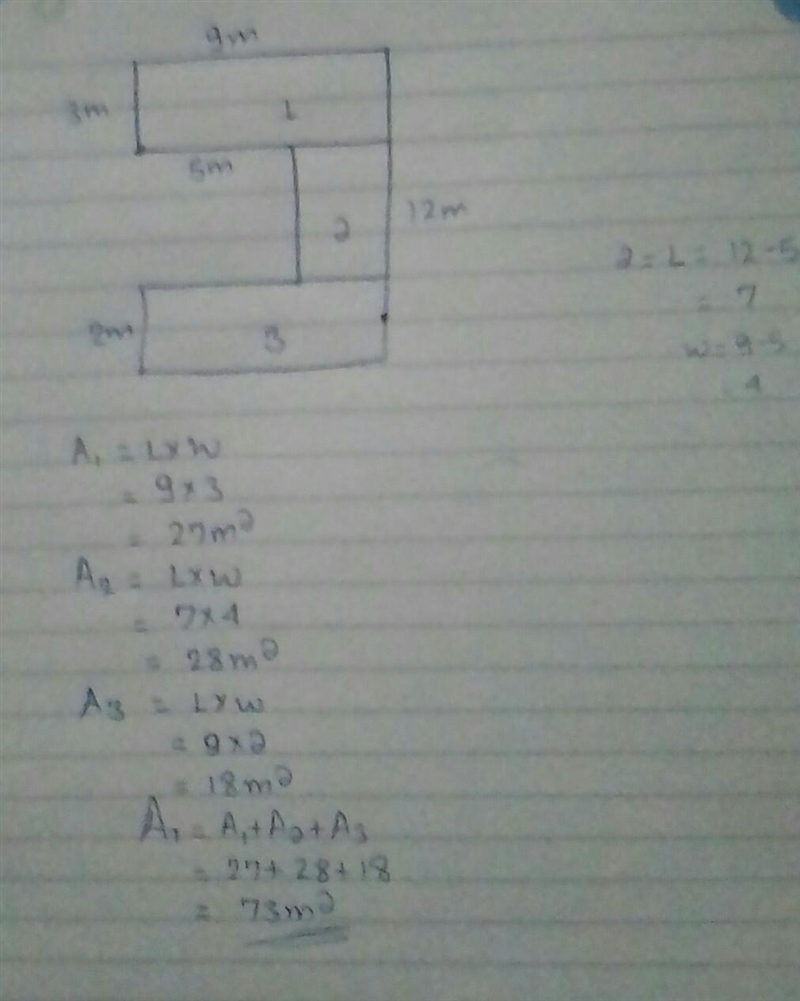 9m
3m
1
5m
2
12m
2m
3
2 = L = 12-5
= 7
w = 9-5
4
A₁ = L x W
= 9 x 3
= 27m²
A₂ = L x W
= 7 x 4
= 28m²
A₃ = L x W
= 9 x 2
= 18m²
A₁ = A₁ + A₂ + A₃
= 27 + 28 + 18
= 73m²